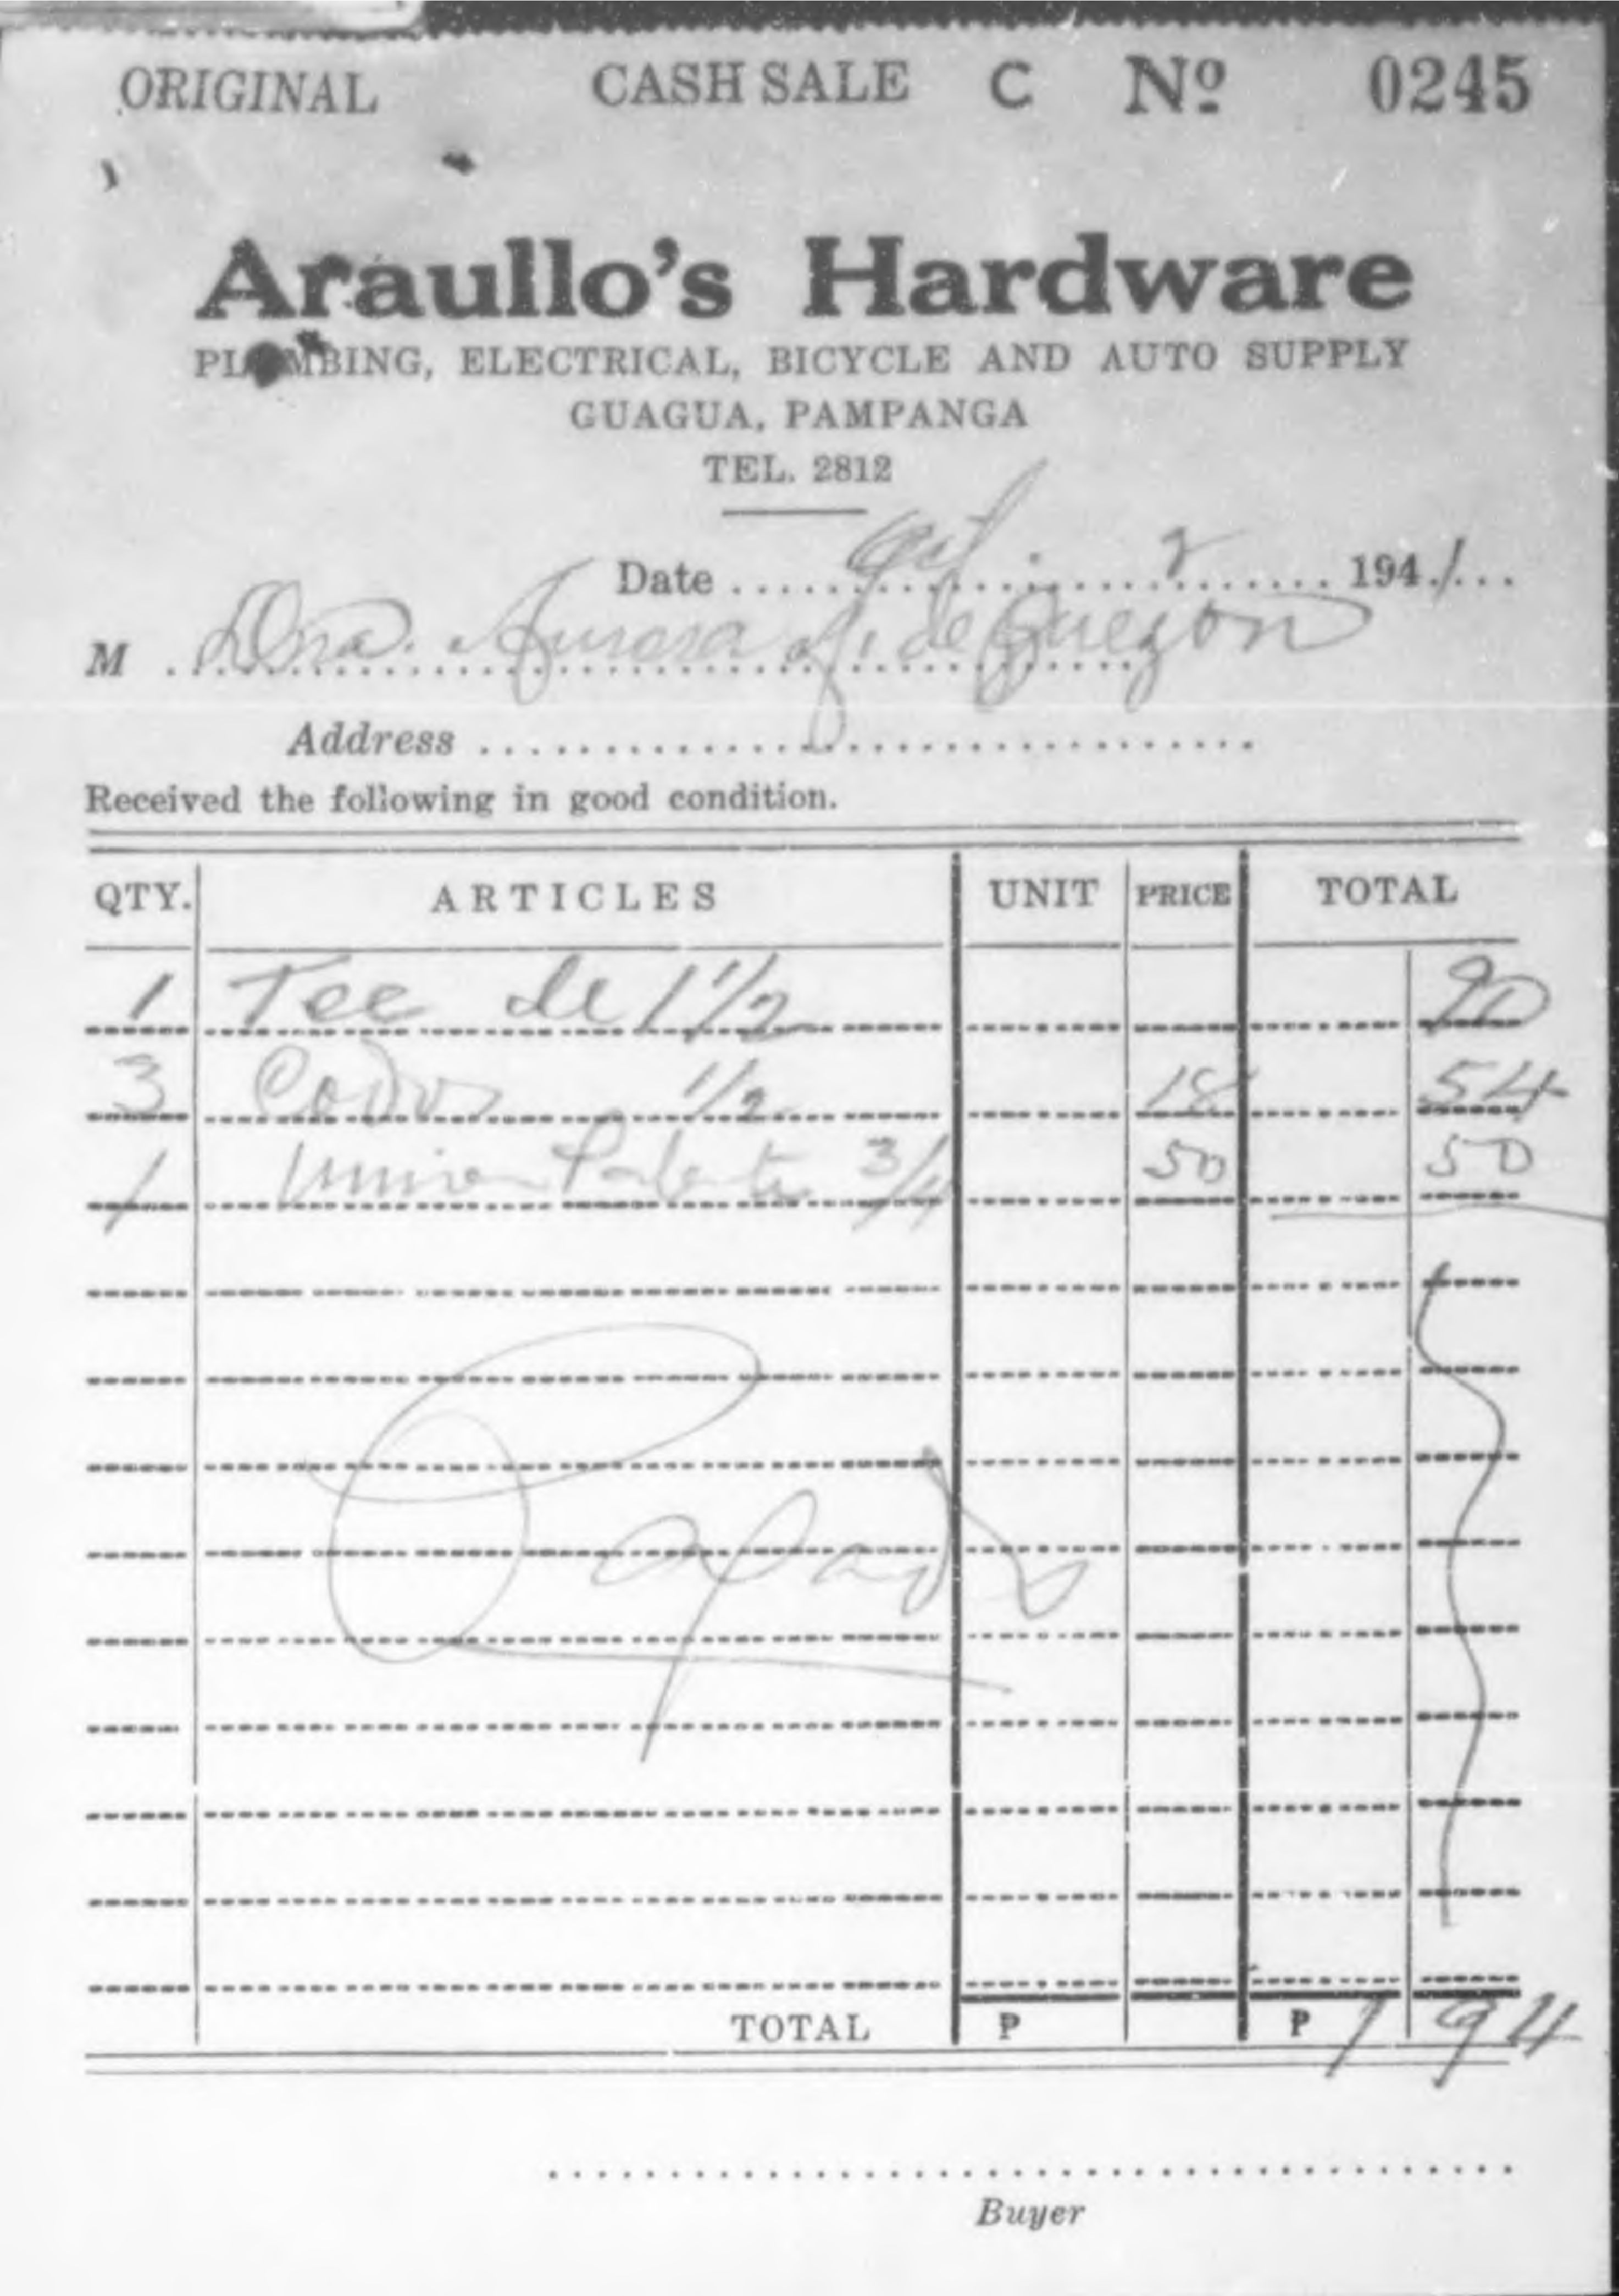 ORIGINAL CASH SALE C Nº 0245
Araullo's Hardware
PLUMBING, ELECTRICAL, BICYCLE AND AUTO SUPPLY
GUAGUA, PAMPANGA
TEL. 2812
Date 2 1941
M Dna. Aurora A. de Quezon
Address
Received the following in good condition.
QTY. ARTICLES UNIT PRICE TOTAL
1 Tee de 1 1/2 90
3 Codos 1/2 18 54
1 Union Patente 3/4 50 50
Pagado
TOTAL ₱ ₱ 1 94
Buyer